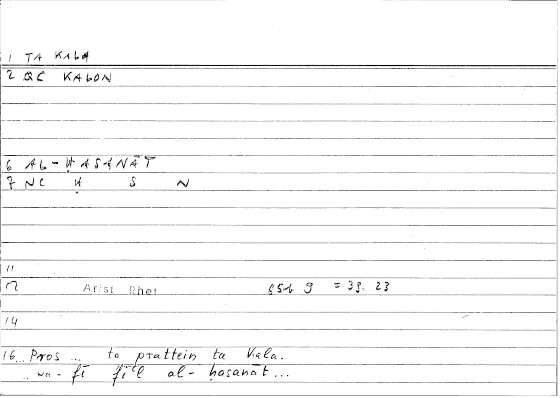 1 TA KALA
2 QC KALON
6 AL-ḤASANĀT
7 NC Ḥ S N
11
12 Arist Rhet 9 = 39. 23
14
16 Pros ... to prattein ta kala.
.. wa-fī fiʿl al-ḥasanāt...